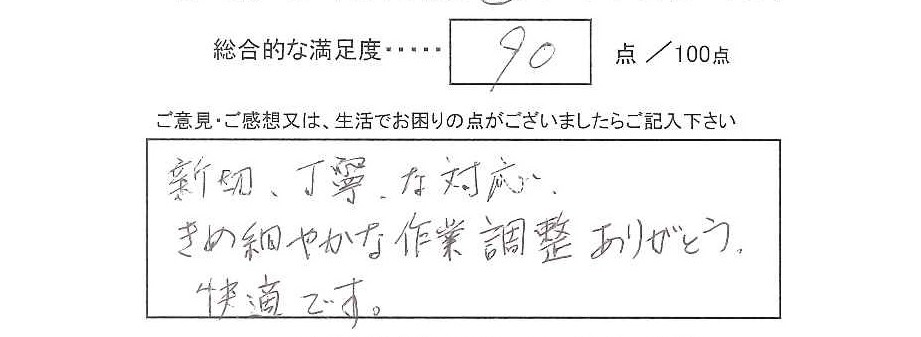 総合的な満足度・・・・・ 90 点 ／100点
ご意見・ご感想又は、生活でお困りの点がございましたらご記入下さい
新切、丁寧、な対応、
きめ細やかな作業調整ありがとう、
快適です。